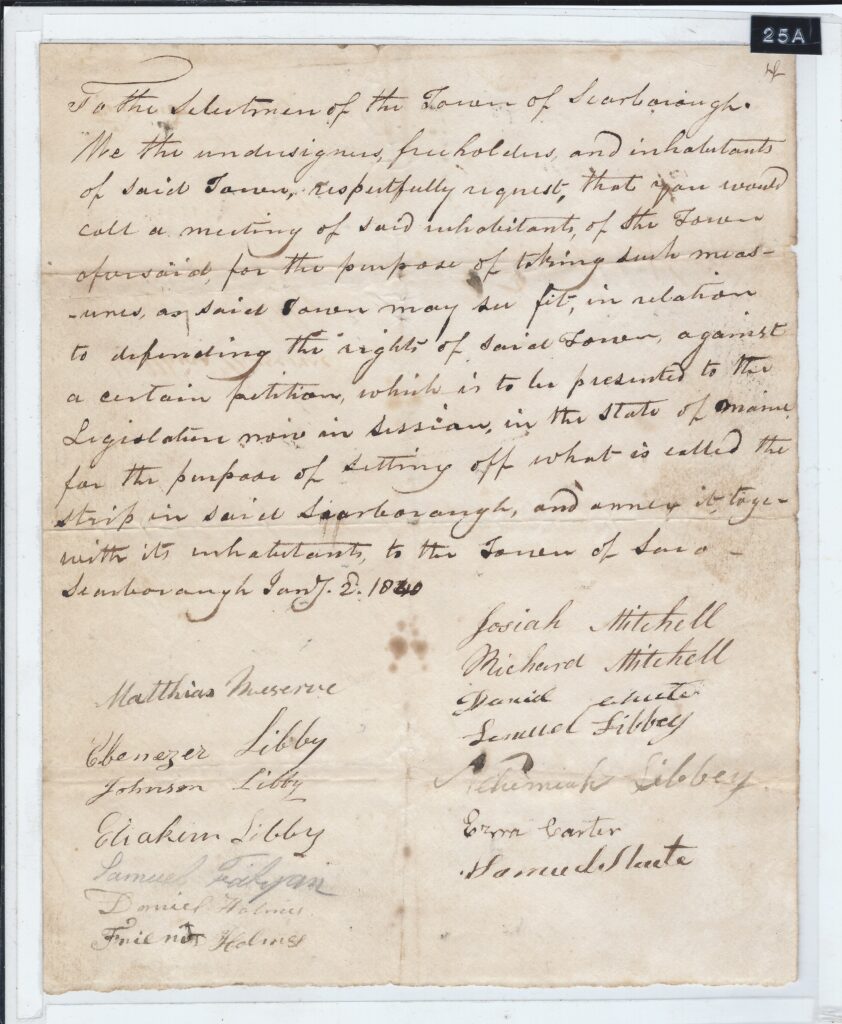 25A
To the Selectmen of the Town of Scarborough.
We the undersigners, freeholders, and inhabitants
of said Town, respectfully request, that you would
call a meeting of said inhabitants, of the Town
aforsaid, for the purpose of taking such meas-
-ures, as said Town may see fit, in relation
to defending the rights of said Town, against
a certain petition, which is to be presented to the
Legislature now in session, in the State of Maine
for the purpose of setting off what is called the
strip in said Scarborough, and annex it, toge-
with its inhabitants, to the Town of Saco -
Scarborough Jany. 2. 1840
Josiah Mitchell
Richard Mitchell
Matthias Meserve
David
Lemuel Libbey
Ebenezer Libby
Johnson Libby
Nehemiah Libbey
Eliakim Libby
Ezra Carter
Samuel Fabyan
Samuel Shute
Daniel Holmes
Friend Holmes